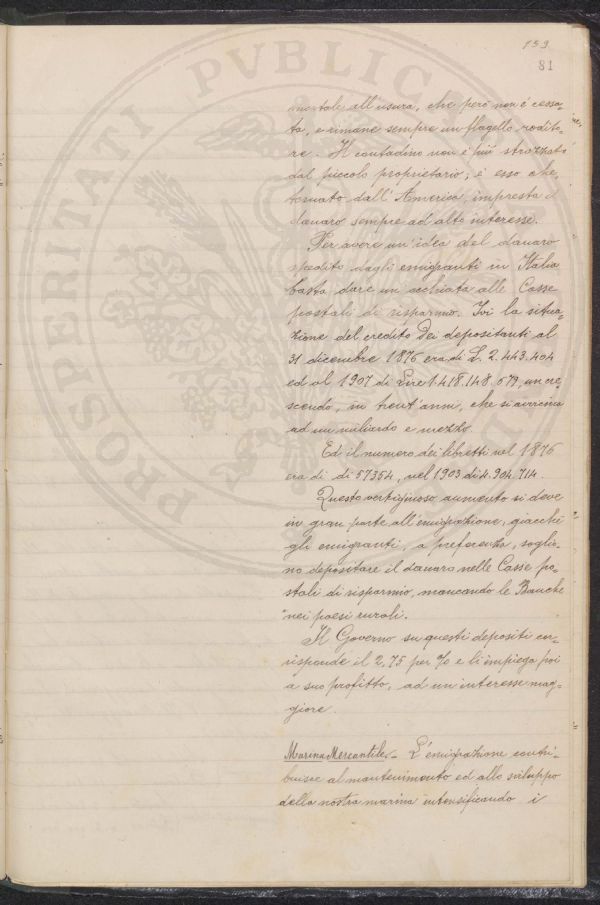 159
81
PROSPERITATI PVBLICAE
mortale all'usura, che però non è cessa-
ta, e rimane sempre un flagello rodito-
re. Il contadino non è più strozzato
dal piccolo proprietario; è esso che,
tornato dall'America, impresta il
danaro sempre ad alto interesse.
Per avere un'idea del danaro
spedito dagli emigranti in Italia
basta dare un'occhiata alle Casse
postali di risparmio. Ivi la situa-
zione del credito dei depositanti al
31 dicembre 1876 era di L. 2.443.404
ed al 1907 di Lire 1.418.148.079, un cre-
scendo, in trent'anni, che si avvicina
ad un miliardo e mezzo.
Ed il numero dei libretti nel 1876
era di di 57354, nel 1903 di 4.904.714.
Questo vertiginoso aumento si deve
in gran parte all'emigrazione, giacchè
gli emigranti, a preferenza, soglio-
no depositare il danaro nelle Casse po-
stali di risparmio, mancando le Banche
nei paesi rurali.
Il Governo su questi depositi cor-
risponde il 2,75 per % e li impiega poi
a suo profitto, ad un interesse mag-
giore.
Marina Mercantile.- L'emigrazione contri-
buisce al mantenimento ed allo sviluppo
della nostra marina intensificando i